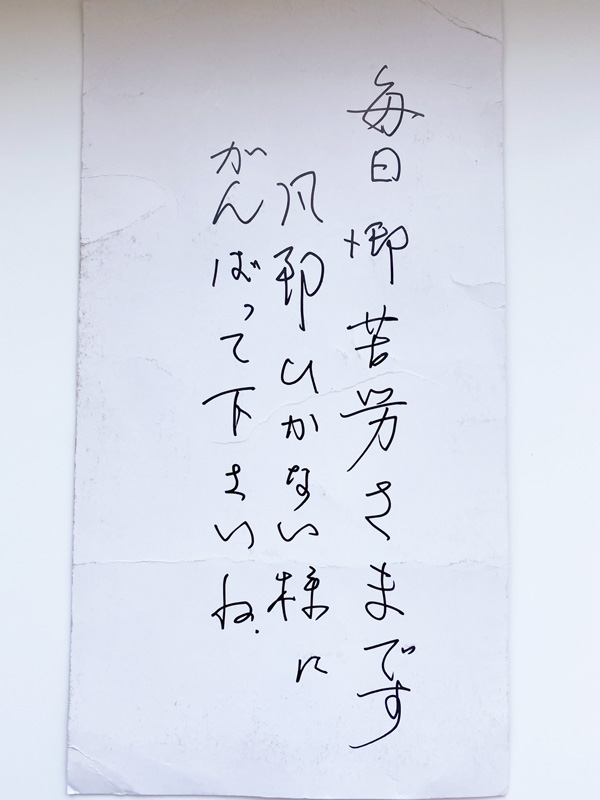 毎日御苦労さまです
風邪ひかない様に
がんばって下さいね.